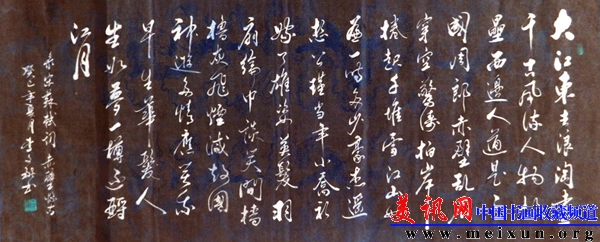 大江東去浪淘盡
千古風流人物
壘西邊人道是
國周郎赤壁亂
穿空驚濤拍岸
捲起千堆雪江山如
畫一時多少豪傑遥
想公瑾當年小喬初
嫁了雄姿英發羽
扇綸巾談笑間檣
櫓灰飛煙滅故國
神遊多情應笑我
早生華髮人
生如夢一樽還酹
江月
宋蘇軾詞赤壁懷古
癸巳年月李書
美讯网
中国书画收藏频道